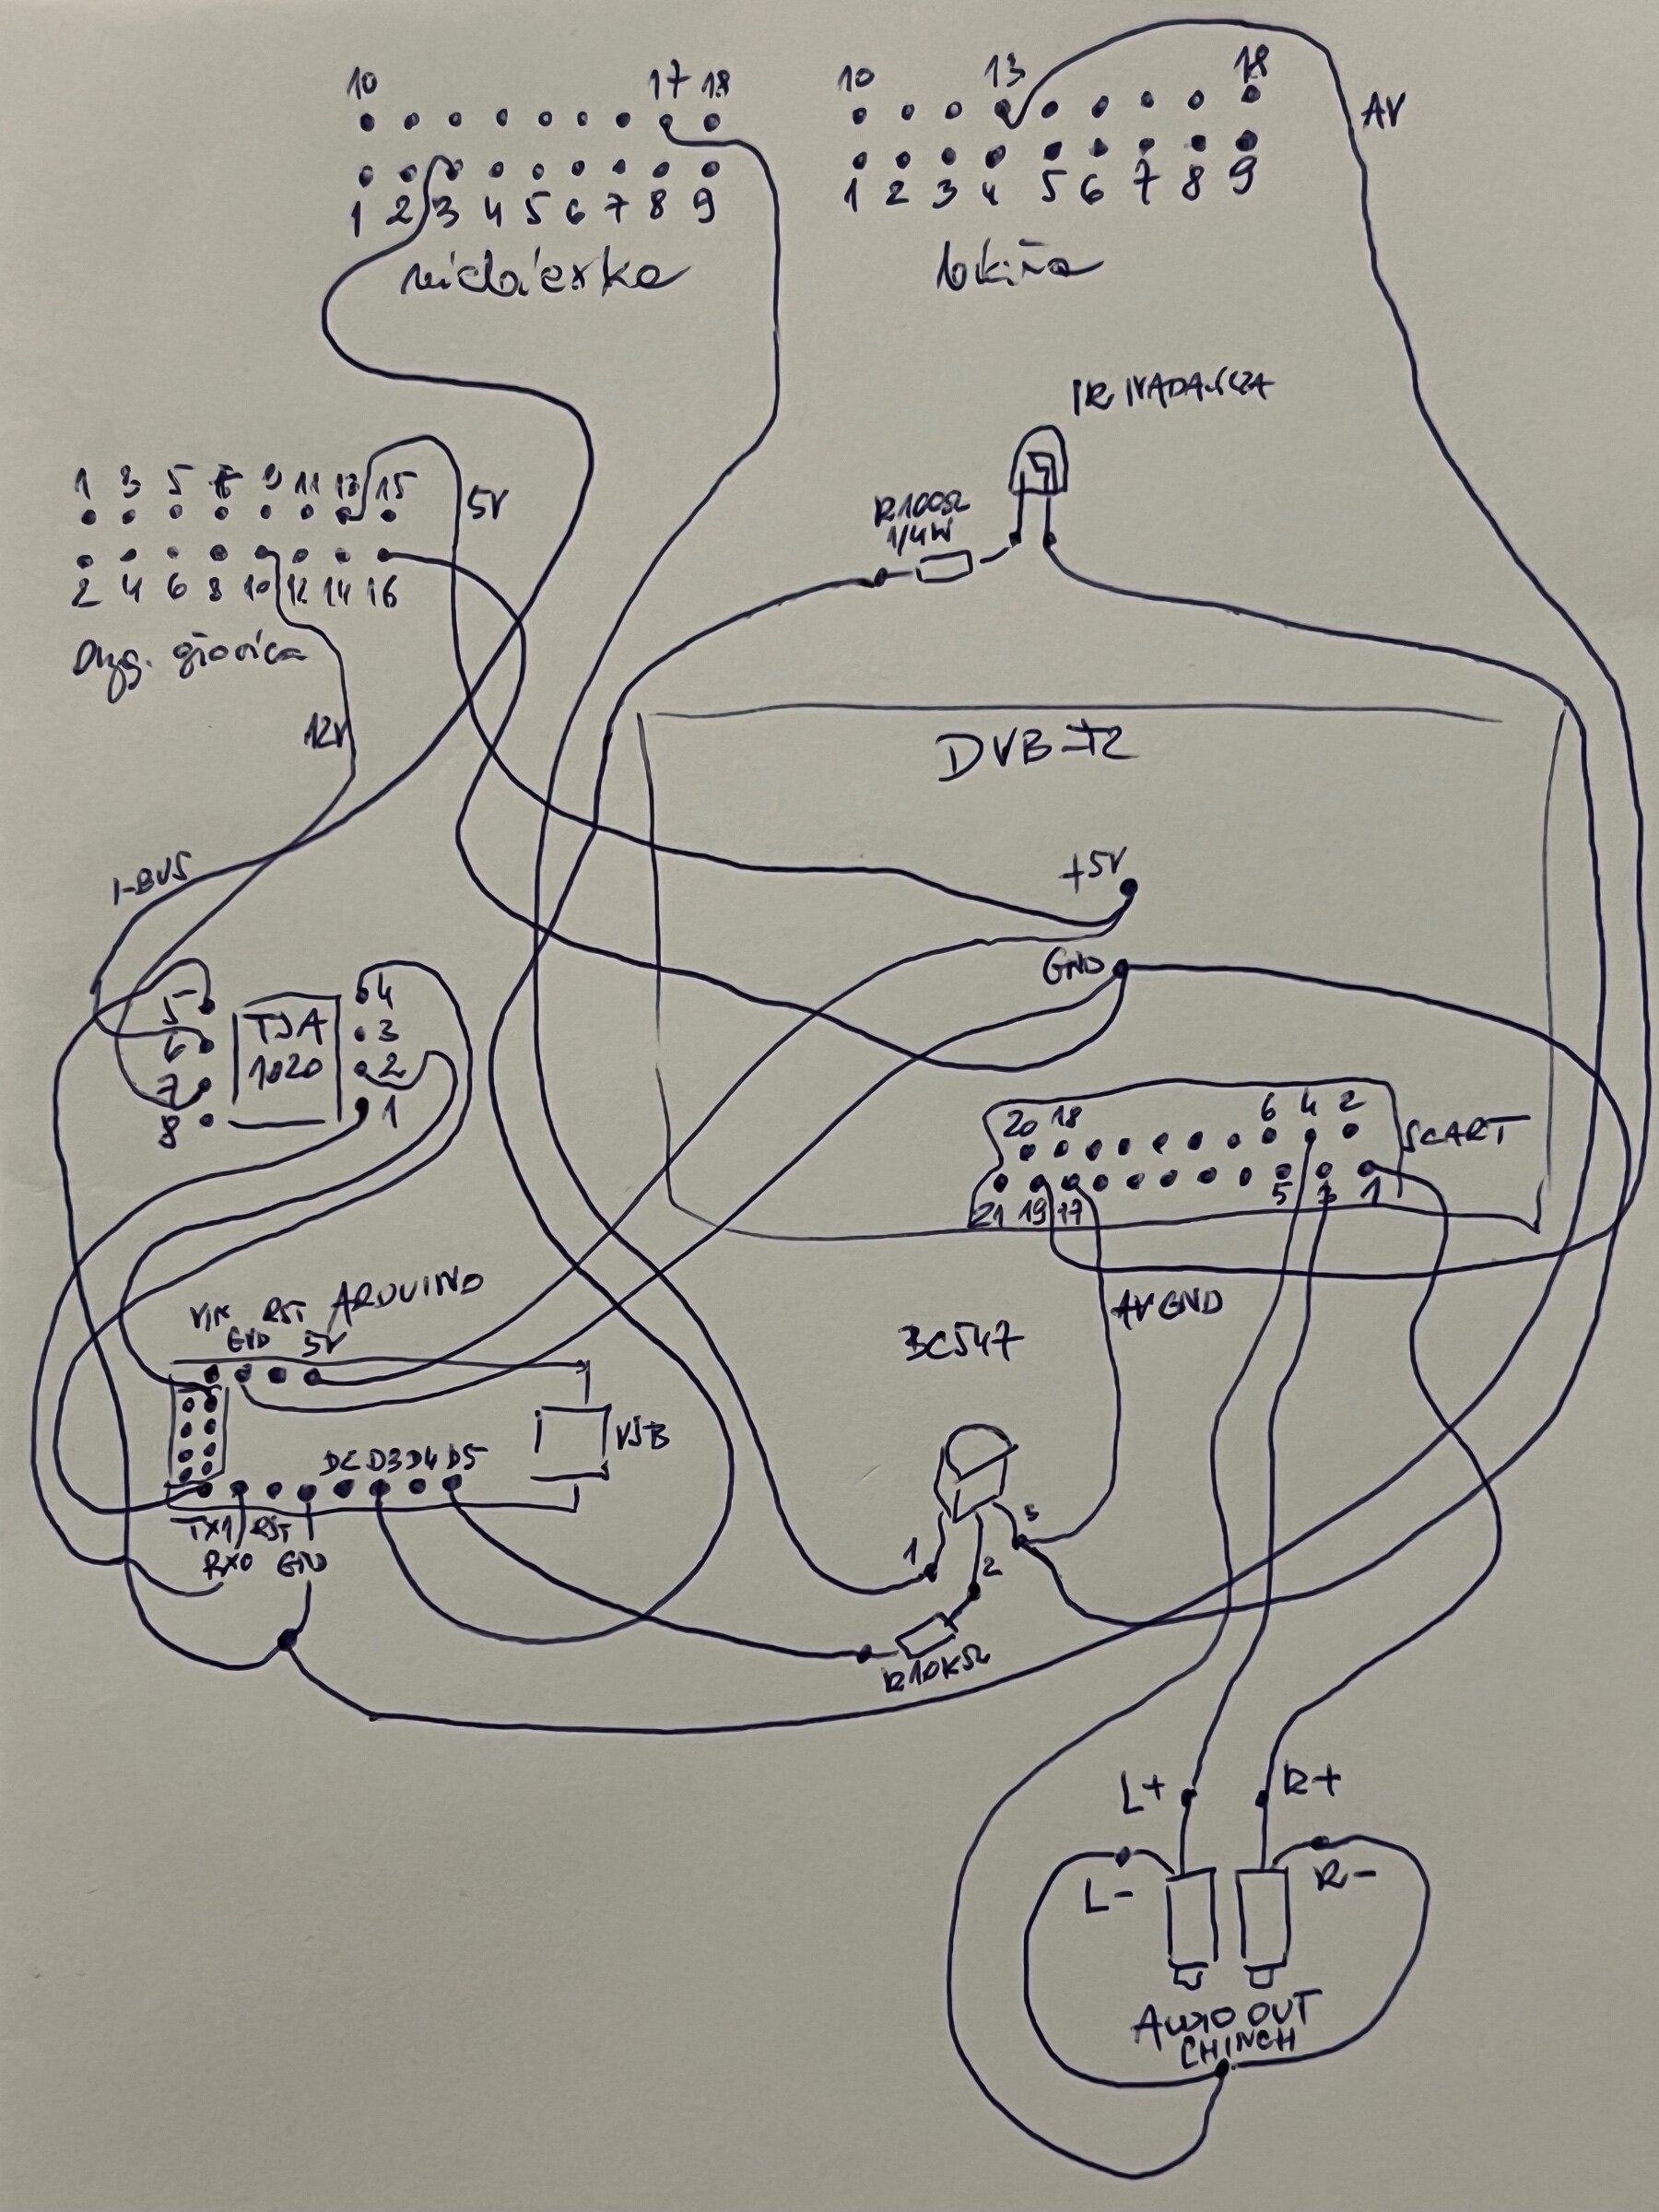 10 17 18
1 2 3 4 5 6 7 8 9
niebieska
10 13 18
1 2 3 4 5 6 7 8 9
AV
IR NADAJĄCA
R100Ω
1/4W
1 3 5 7 9 11 13 15
2 4 6 8 10 12 14 16
5V
12V
DVB-T2
+5V
GND
I-BUS
5
6
7
8
TJA
1020
4
3
2
1
20 18 6 4 2
21 19 17 5 3 1
SCART
AV GND
BC547
1
2
3
R10KΩ
ARDUINO
VIN RST
GND 5V
USB
D2 D3 D4 D5
TX1 RST
RX0 GND
L+
R+
L-
R-
AUDIO OUT
CHINCH